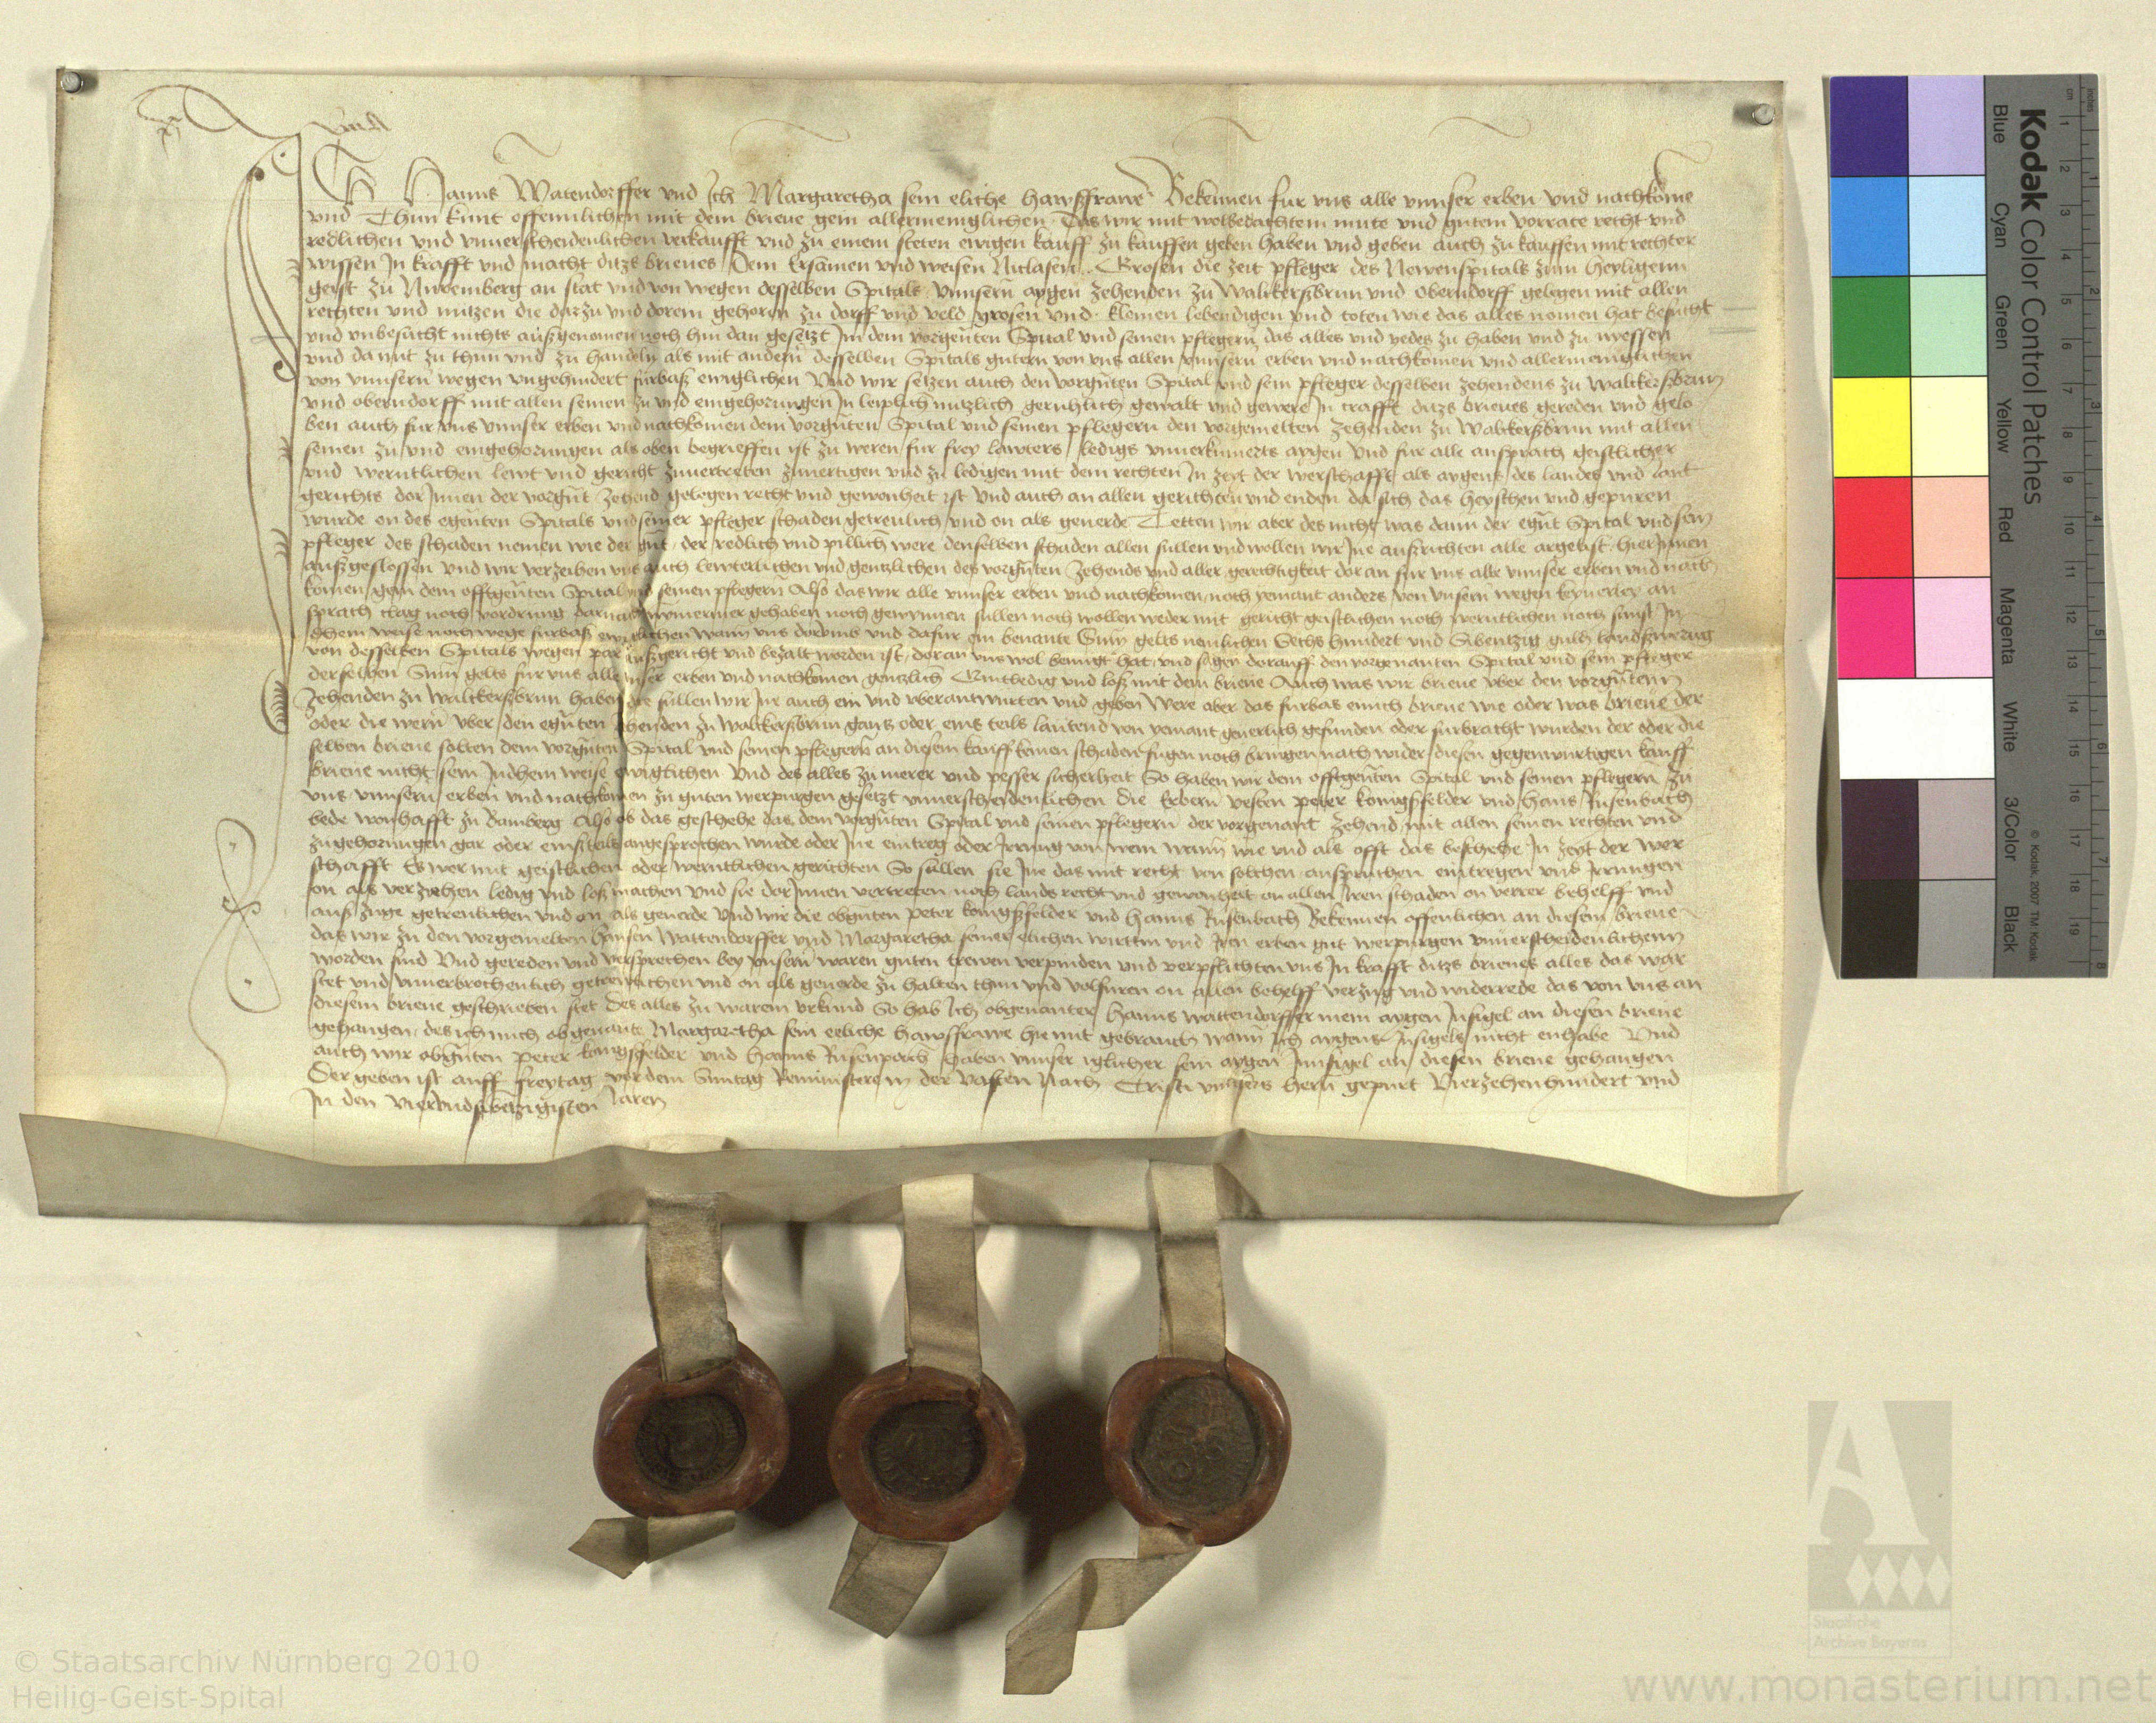 Ich Hanns Watendorffer vnd Ich Margaretha sein eliche hawsffrawe Bekennen fur vns alle vnnser erben vnd nachkome
vnd Thun kunt offennlichen mit dem brieue gein allermeniglichen Das wir mit wolbedachtem mute vnd gutem vorrate recht vnd
redlichen vnd vnuerscheidenlichen verkaufft vnd zu einem steten ewigen kauff zu kauffen geben haben vnd geben auch zu kauffen mit rechter
wissen In krafft vnd macht ditzs brieues Dem Ersamen vnd weisen Niclasen Grosen die zeit pfleger des Newenspitals zum heyligenn
geist zu Nuremberg an stat vnd von wegen desselben Spitals vnnsern aygen zehenden zu Walckerßbrun vnd oberndorff gelegen mit allen
rechten vnd nutzen die darzu vnd dorein gehoren zu dorff vnd veld grosen vnd kleinen lebendigen vnd toten wie das alles namen hat besucht
vnd vnbesucht nichts außgenomen noch hin dan gesetzt Im dem vorgnten Spital vnd seinen pflegern das alles vnd yedes zu haben vnd zu nyessen
vnd da mit zu thun vnd zu handeln als mit andern desselben Spitals gutern von vns allen vnnsern erben vnd nachkomen vnd allermeniglichen
von vnnsern wegen vngehindert furbaß ewiglichen Vnd wir setzen auch den vorgnten Spital vnd sein pfleger desselben zehendens zu walckerßbrun
vnd oberndorff mit allen seinen zu vnd eingehorungen In leiplich nutzlich geruhlich gewalt vnd gewere In crafft ditzs brieues gereden vnd gelo
ben auch fur vns vnnser erben vnd nachkomen dem vorgnten Spital vnd seinen pflegern den vorgemelten zehenden zu Walckerßbrun mit allen
seinen zu vnd eingehorungen als oben begrieffen ist zu weren fur frey lawters ledigs vnuerkumerts aygen Vnd fur alle ansprach geistlicher
vnd werntlichen lewt vnd gericht zuuertreten zuuertigen vnd zu ledigen mit dem rechten In zeyt der werschafft als aygens des landes vnd lant
gerichts dor Innen der vorgnt zehend gelegen recht vnd gewonheit ist Vnd auch an allen gerichten vnd enden da sich das heyschen vnd gepuren
wurde on des egnten Spitals vnd seiner pfleger schaden getreulich vnd on als geuerde Tetten wir aber des nicht was dann der egnt Spital vnd sein
pfleger des schaden nemen wie der gnt der redlich vnd pillich were denselben schaden allen sullen vnd wollen wir Ine außrichten alle argelist hier Innen
außgeslossen Vnd wir verzeihen vns auch lewterlichen vnd gentzlichen des vorgnten zehends vnd aller gerechtigkeit dor an fur vns alle vnnser erben vnd nach
komen gein dem offtgnten Spital vnd seinen pflegern Also das wir alle vnnser erben vnd nachkomen noch yemant anders von vnsern wegen keynerley an
sprach clag noch vordrung darnach nymermer gehaben noch gewynnen sullen noch wollen weder mit gericht geistlichen noch werntlichen noch sunst In
dhein weise noch wege furbaß ewiglichen wann vns dorvmb vnd dafur ein benante Sum gelts nemlichen Sechs hundert vnd Sibentzig guldn landßwerung
von desselben Spitals wegen par außgericht vnd bezalt worden ist doran vns wol benugt hat vnd sagen dorauff den vorgenanten Spital vnd sein pfleger
derselben Sum gelts fur vns alle vnser erben vnd nachkomen gentzlich Quitledig vnd loß mit dem brieue Auch was wir brieue vber den vorgnten
zehenden zu Walckerßbrun haben die sullen wir Ine auch ein vnd vberantwurten vnd geben Were aber das furbas einich brieue wie oder was brieue der
oder die wern vber den egnten zehenden zu Walckerßbrun gants oder eins teils lautend von yemant geuerlich gefunden oder furbracht wurden der oder die
selben brieue solten dem vorgnten Spital vnd seinen pflegern an diesem kauff keinen schaden fugen noch bringen nach wider diesen gegenwurtigen kauff
brieue nicht sein In dhein weise ewiglichen Vnd des alles zu merer vnd pesser sicherheit So haben wir dem offtgnten Spital vnd seinen pflegern zu
vns vnnsern erben vnd nachkomen zu guten werpurgen gesetzt vnuerscheidenlichen die Erbern vesten peter konigßfelder vnd Hans Rusenbach
bede wonhafft zu Bamberg Also ob das geschehe das dem vorgnten Spital vnd seinen pflegern der vorgenant zehend mit allen seinen rechten vnd
zugehorungen gar oder einßteils angesprochen wurde oder Ine eintreg oder Irrung von wem wann wie vnd als offt das beschehe In zeyt der wer
schafft Es wer mit geistlichen oder werntlichen gerichten So sullen sie Ine das mit recht von solchen anspruchen eintregen vnd Irrungen
on als verziehen ledig vnd loß machen Vnd sie dor Innen vertreten nach lands recht vnd gewonheit on allen Iren schaden on verrer behelff vnd
auß zuge getreulichen vnd on als geuerde Vnd wir die obgnten Peter konigßfelder vnd Hanns Rusenbach Bekennen offenlichen an diesem brieue
das wir zu den vorgemelten Hansen Wattendorffer vnd Margaretha seiner elichen wirttin vnd Iren erben gut werpurgen vnuerscheidenlichenn
worden sind Vnd gereden vnd versprechen bey vnsern waren guten trewen verpinden vnd verpflichten vns In krafft ditzs brieues alles das war
stet vnd vnuerbrochenlich getreulichen vnd on als geuerde zu halten thun vnd volfuren on allen behelff verzug vnd widerrede das von vns an
diesem brieue geschrieben stet Des alles zu warem vrkund So hab Ich obgenanter Hanns Wattendorffer mein aygen Insigel an diesen brieue
gehangen des ich mich obgenante Margaretha sein eeliche Hawsfrawe hie mit gebrauch wann Ich aygens Insigels nicht enhabe Vnd
auch wir obgnten Peter konigßfelder vnd Hanns Rusenpach haben vnnser iglicher sein aygen Innsigel an diesen brieue gehangen
Der geben ist auff freytag vor dem Suntag Reminiscere in der Vasten Nach Cristi vnnsers hern gepurt Vierzehenhundert vnd
In den vierundsibentzigisten Jaren
Kodak Color Control Patches
Blue Cyan Green Yellow Red Magenta White 3/Color Black
© Kodak, 2007 TM Kodak
cm 1 2 3 4 5 6 7 8 9 10 11 12 13 14 15 16 17 18 19
inches 1 2 3 4 5 6 7 8
Staatliche
Archive Bayerns
© Staatsarchiv Nürnberg 2010
Heilig-Geist-Spital
www.monasterium.net